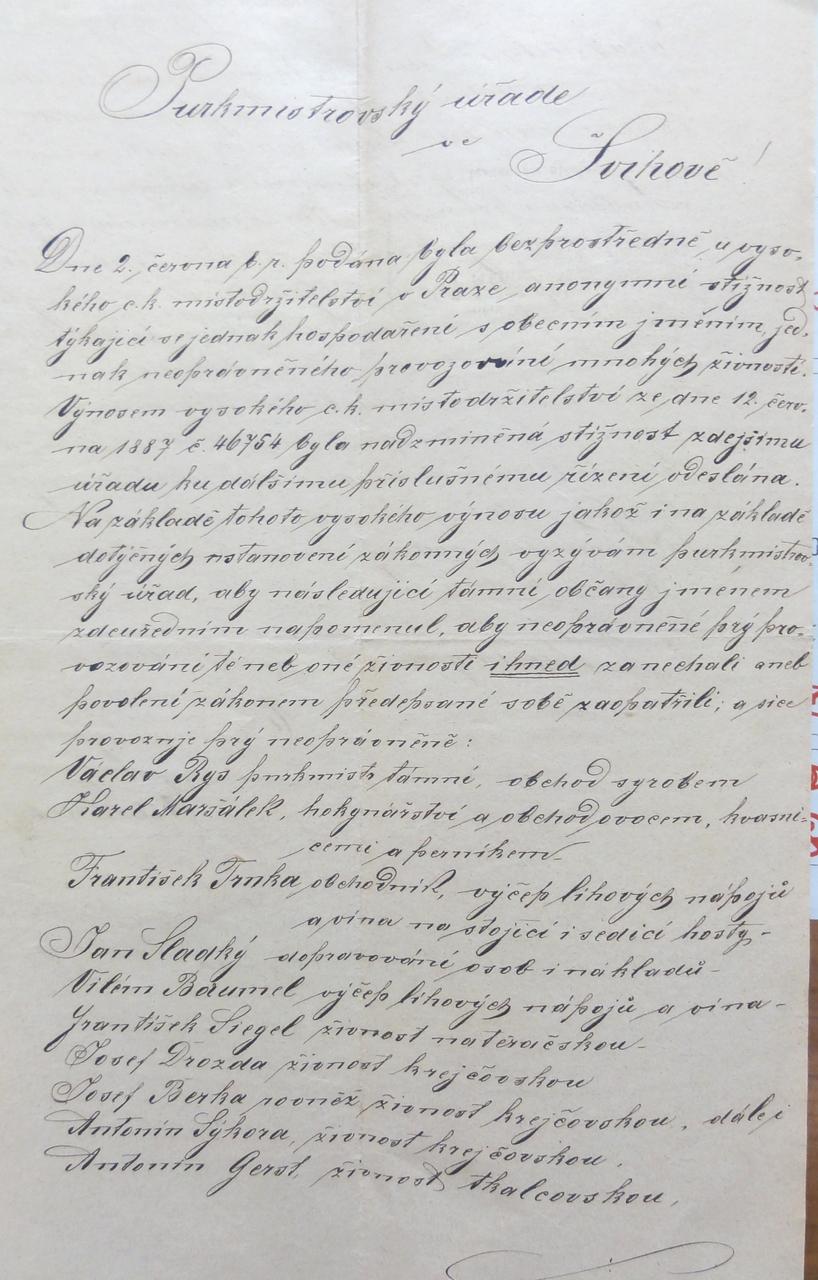 Purkmistrovský úřade
ve
Švihově!
Dne 2. června b. r. podána byla bezprostředně u vyso-
kého c. k. mistodržitelství v Praze anonymní stižnost
týkající se jednak hospodaření s obecním jměním, jed-
nak neoprávněného provozování mnohých živností.
Výnosem vysokého c. k. mistodržitelství ze dne 12. červ-
na 1887 č. 46754 byla nadzmíněná stižnost zdejšímu
úřadu ku dalšímu příslušnému řízení odeslána.
Na základě tohoto vysokého výnosu jakož i na základě
dotýčných ustanovení zákonných vyzývám purkmistrov-
ský úřad, aby následující támní občany jménem
zdeuředním napomenul, aby neoprávněné prý pro-
vozování té neb oné živnosti ihned zanechali aneb
povolení zákonem předepsané sobě zaopatřili; a sice
provozuje prý neoprávněně:
Václav Rys purkmistr támní, obchod syrobem
Karel Maršálek, hokynářství a obchod ovocem, kvasni-
cemi a perníkem-
František Trnka obchodník, výčep lihových nápojů
a vína na stojící i sedící hosty-
Jan Sladký dopravování osob i nákladů-
Vilém Baumel výčep lihových nápojů a vína-
František Siegel živnost natěračskou-
Josef Drozda živnost krejčovskou
Josef Berka rovněž živnost krejčovskou, dále i
Antonín Sýkora, živnost krejčovskou,
Antonín Gerst, živnost tkalcovskou,